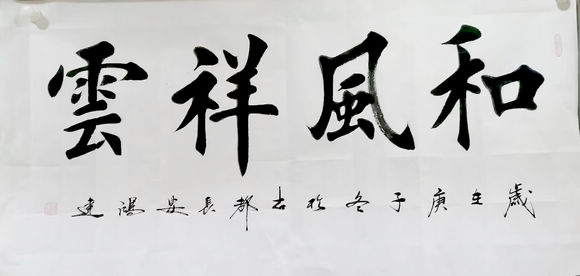 和風祥雲
歲在庚子冬於古都長安鴻達